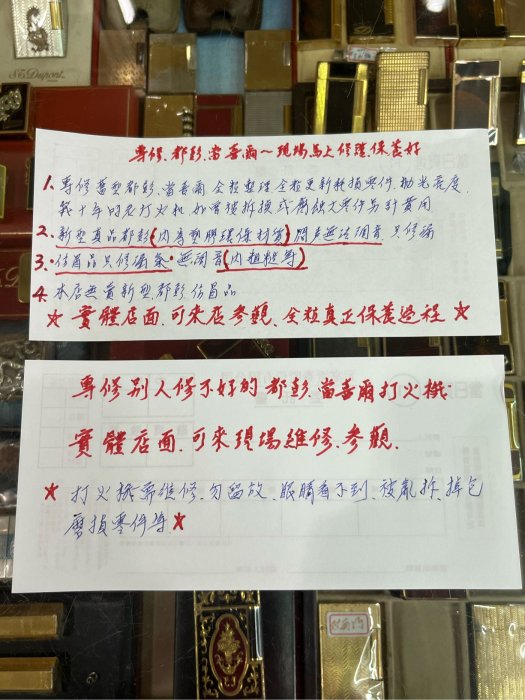 S.T.Dupont
專修.都彭.當喜爾～現場馬上修理保養好
1、專修舊型都彭、當喜爾 全粒整理 全粒更新耗損零件、拋光亮度
幾十年的老打火机 如曾損拆換 或腐蝕大零件另計費用
2、新型真品都彭(内為塑膠環保材質)開声無法調音.只修漏
3、仿冒品只修漏氣、無調音(内粗糙等)
4、本店無賣新型.都彭仿冒品
★ 實體店面.可來店參觀.全粒真正保養過程 ★
專修別人修不好的都彭.當喜爾打火機.
實體店面.可來現場維修.參觀.
★ 打火機需維修.勿留放.眼睛看不到.被亂拆、掉包
磨損零件等.★